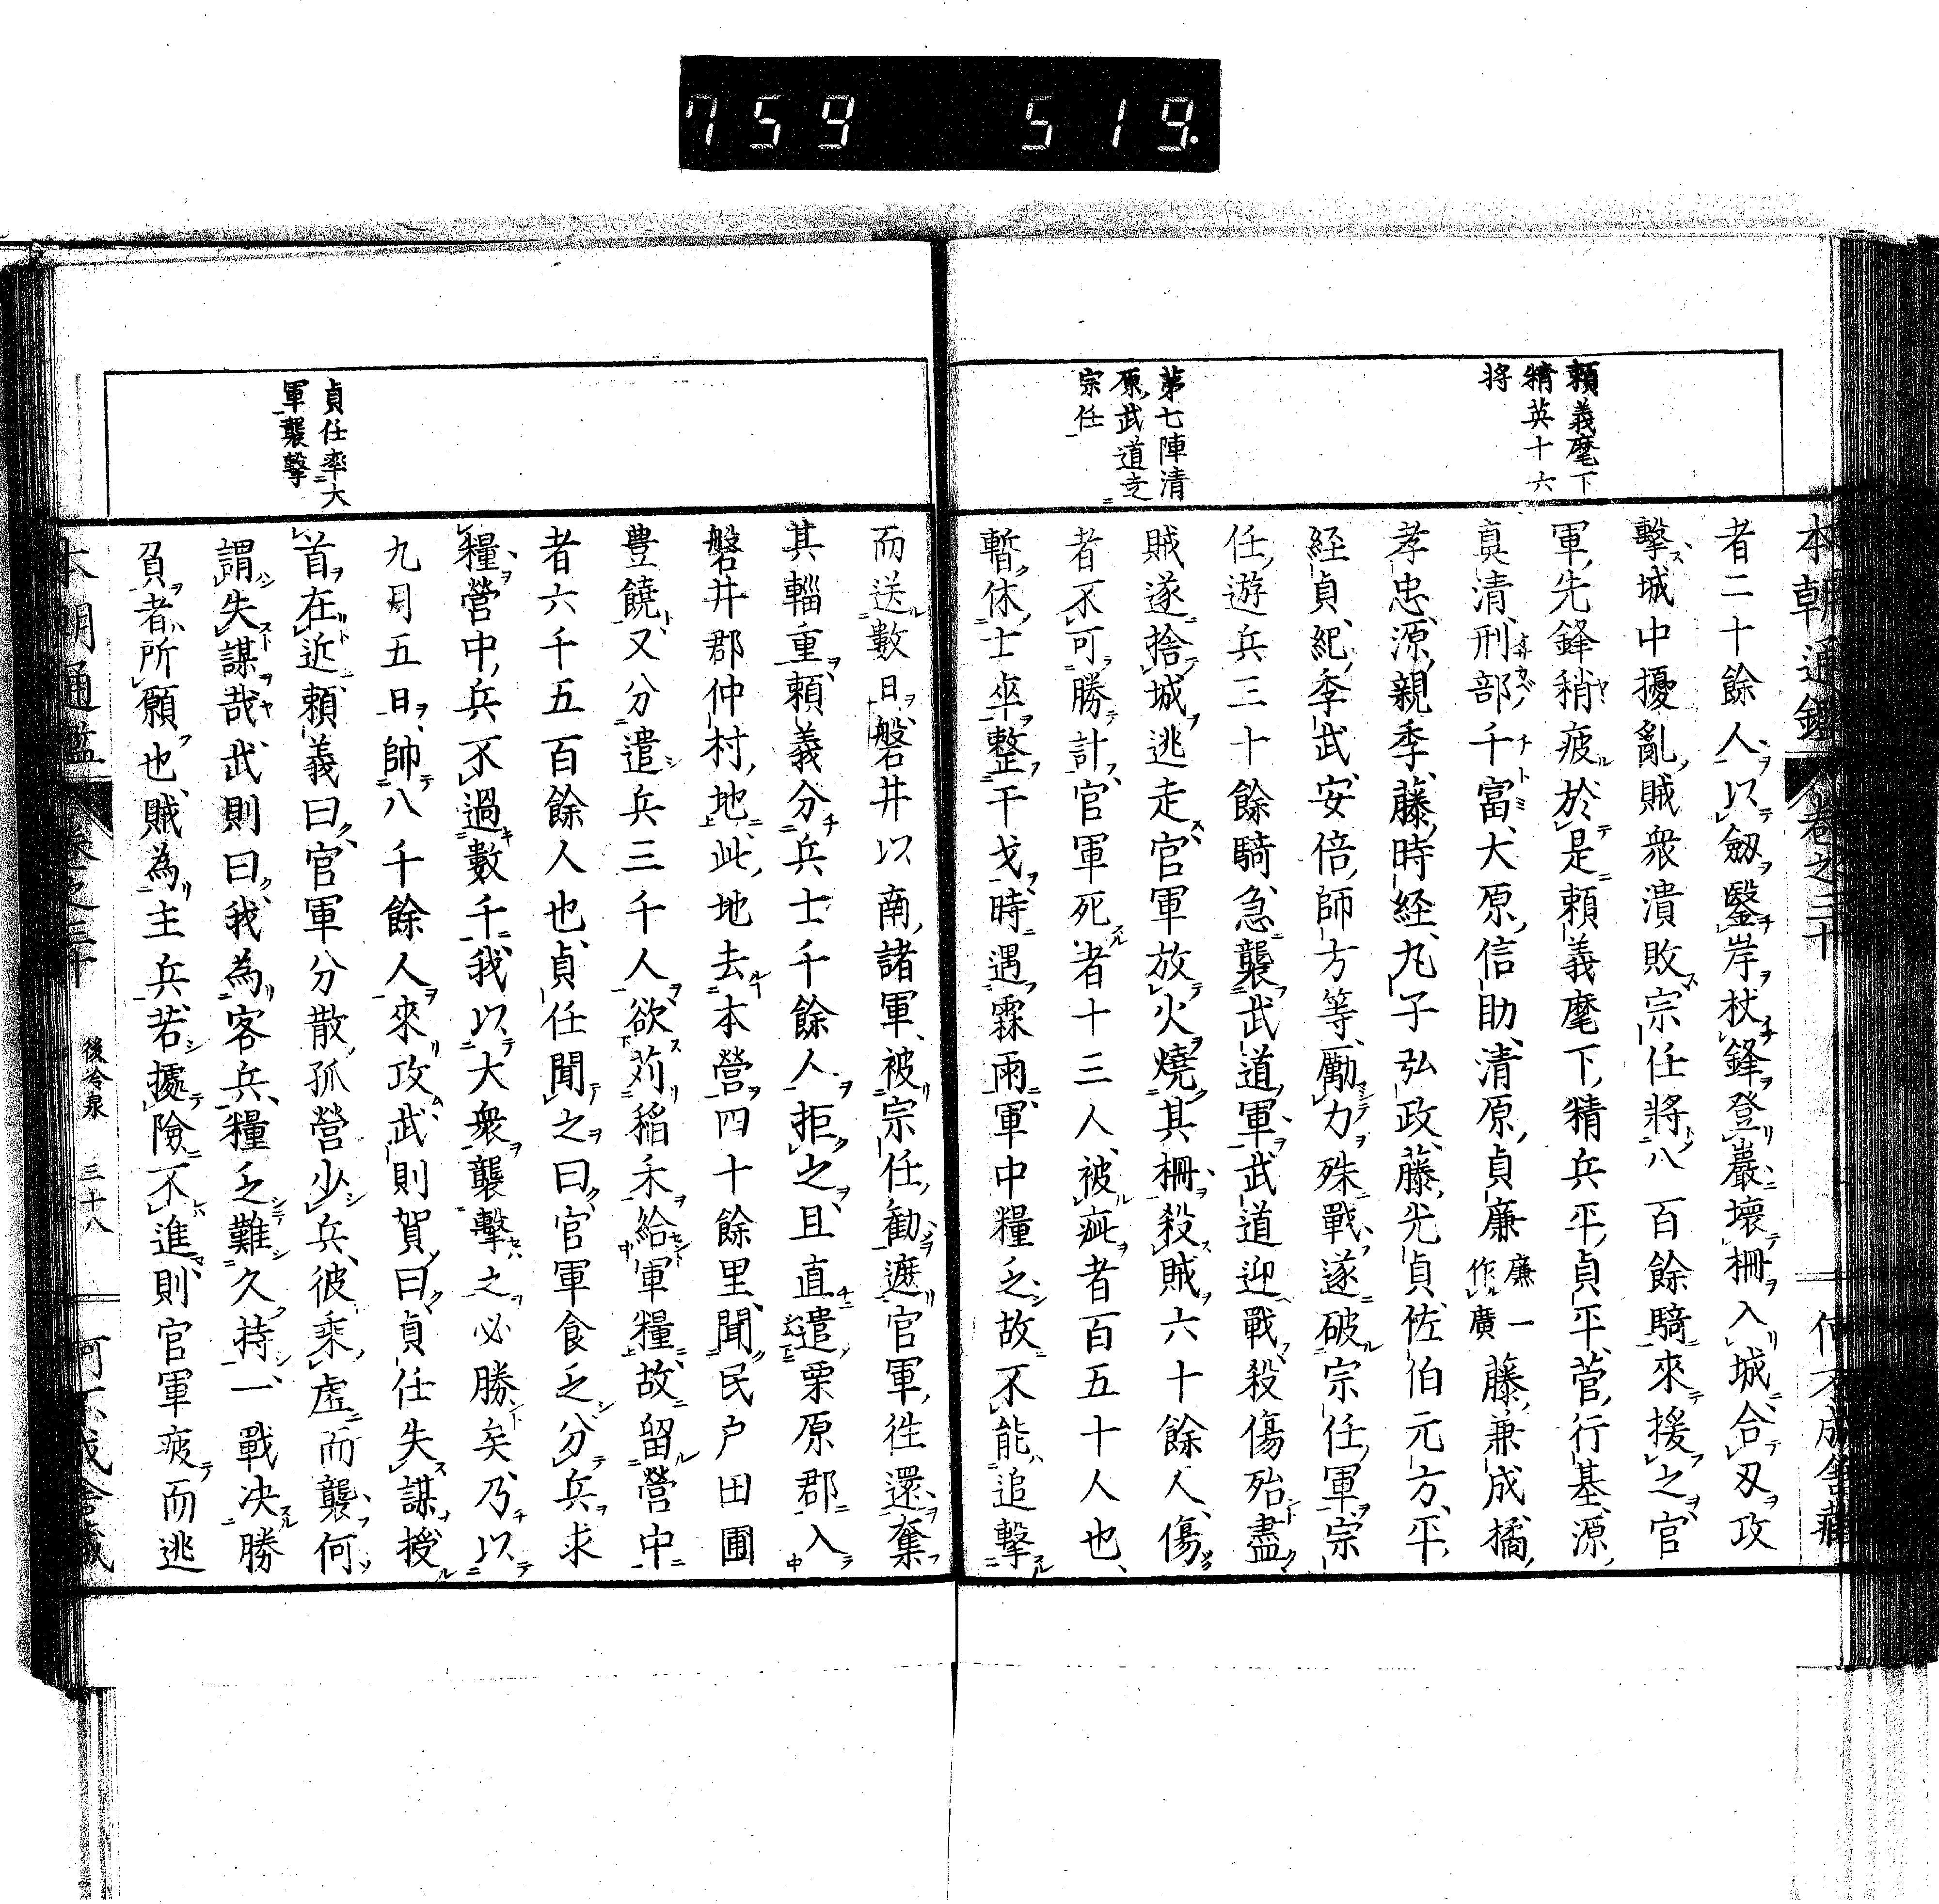 759 519.
本朝通鑑 卷之三十
頼義麾下
精英十六
将
第七陣清
原武道走
宗任
者二十餘人以劔鑿岸杖鋒登巖壞柵入城合刄攻
擊城中擾亂賊衆潰敗宗任將八百餘騎來援之官
軍先鋒稍疲於是頼義麾下精兵平貞平菅行基源
眞清刑部千富大原信助清原貞廉廉一作廣藤兼成橘
孝忠源親季藤時経丸子弘政藤光貞佐伯元方平
経貞紀季武安倍師方等勵力殊戰遂破宗任軍宗
任遊兵三十餘騎急襲武道軍武道迎戰殺傷殆盡
賊遂捨城逃走官軍放火燒其柵殺賊六十餘人傷
者不可勝計官軍死者十三人被疵者百五十人也
暫休士卒整干戈時遇霖雨軍中糧乏故不能追擊
而送數日磐井以南諸軍被宗任勧遮官軍徃還奪
其輜重頼義分兵士千餘人拒之且直遣栗原郡入
磐井郡仲村地此地去本營四十餘里聞民戸田圃
豊饒又分遣兵三千人欲苅稲禾給軍糧故留營中
者六千五百餘人也貞任聞之曰官軍食乏分兵求
糧營中兵不過數千我以大衆襲擊之必勝矣乃以
九月五日帥八千餘人來攻武則賀曰貞任失謀授
首在近頼義曰官軍分散孤營少兵彼乘虚而襲何
謂失謀哉武則曰我為客兵糧乏難久持一戰决勝
負者所願也賊為主兵若據險不進則官軍疲而逃
貞任率大
軍襲擊
本朝通鑑 卷之三十 後冷泉 三十八